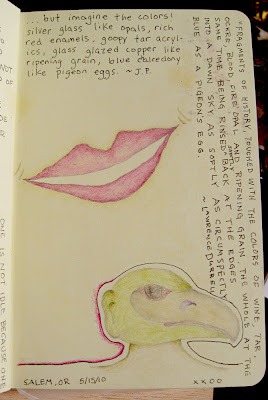 ...but imagine the colors!
silver glass like opals, rich
red enamels, goopy tar acryl-
ics, glass glazed copper like
ripening grain, blue chalcedony
like pigeon eggs. ~J.P.
"FRAGMENTS OF HISTORY, TOUCHED WITH THE COLORS OF WINE, TAR,
OCHRE, BLOOD, FIRE OPAL AND RIPENING GRAIN. THE WHOLE AT THE
SAME TIME BEING RINSED SOFTLY BACK AT THE EDGES
INTO A DAWN SKY AS SOFTLY AS CIRCUMSPECTLY
BLUE AS A PIGEON'S EGG.
~LAWRENCE DURRELL
SALEM, OR 5/15/10
XXOO
NOT
ONE IS NOT IDLE BECAUSE ONE